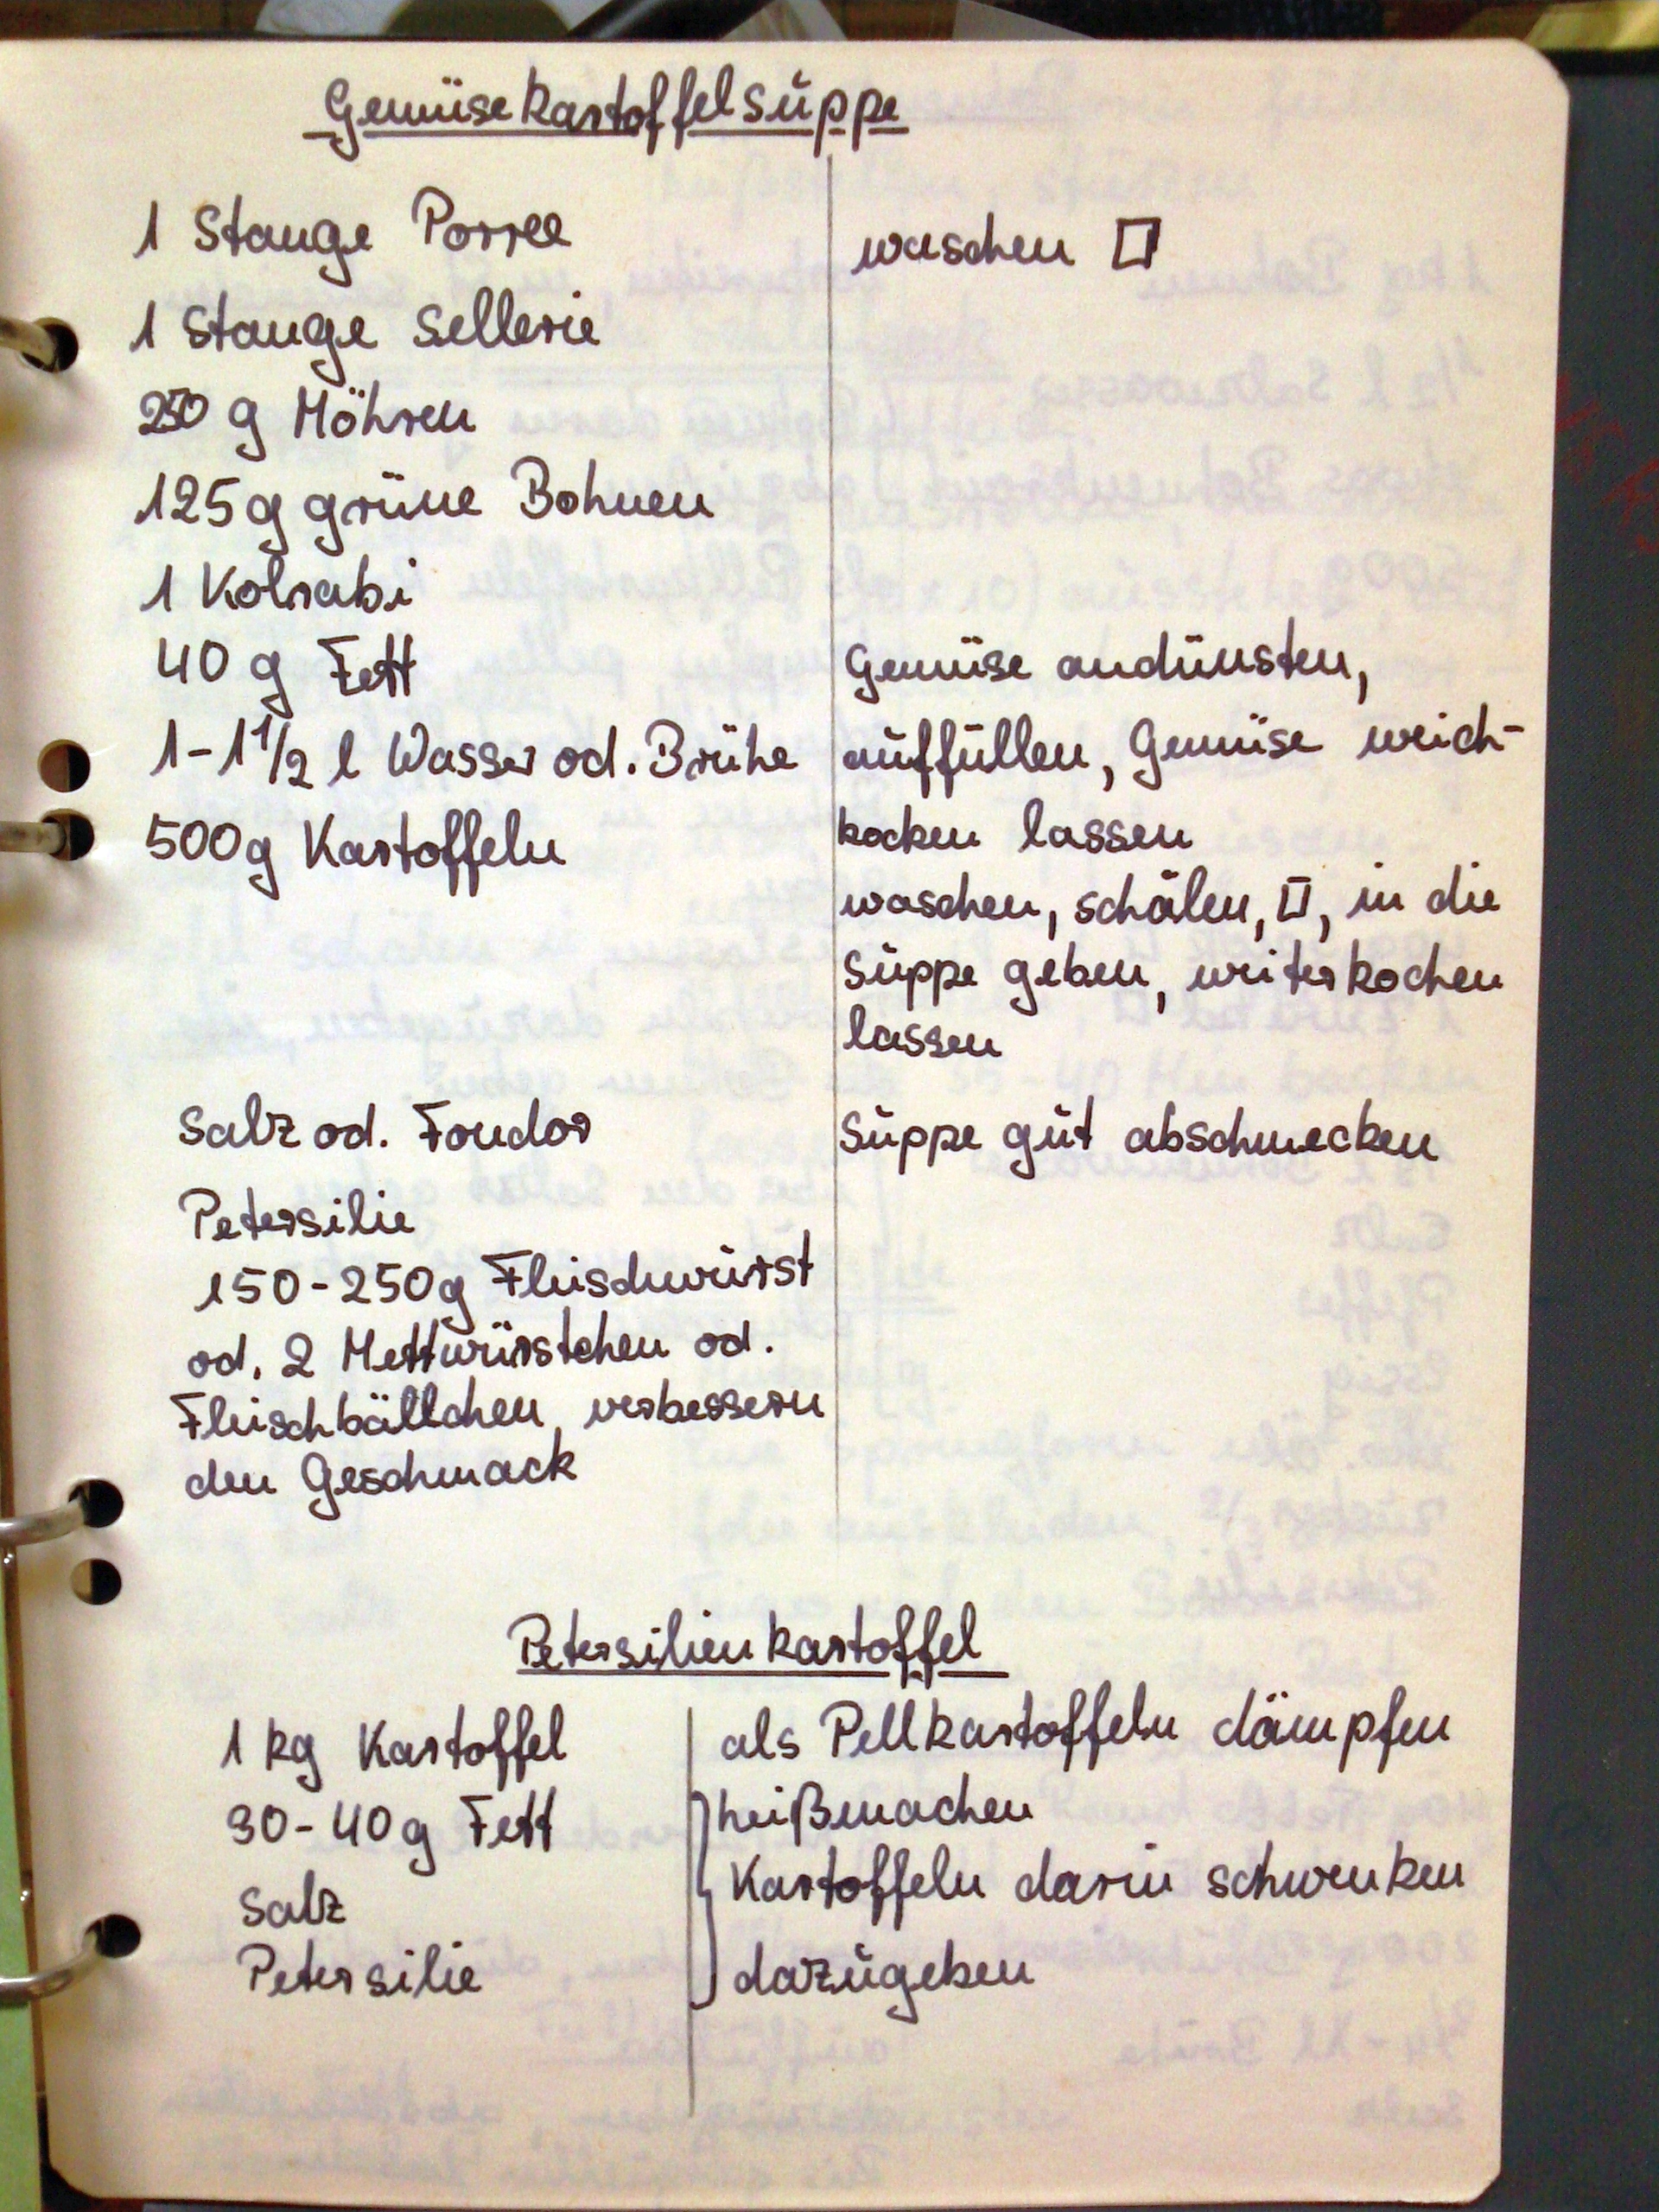 Gemüsekartoffelsuppe
1 Stange Porree
waschen □
1 Stange Sellerie
250 g Möhren
125 g grüne Bohnen
1 Kolrabi
40 g Fett
Gemüse andünsten,
1-1 1/2 l Wasser od. Brühe
auffüllen, Gemüse weich-
500g Kartoffeln
kochen lassen
waschen, schälen, □, in die
Suppe geben, weiterkochen
lassen
Salz od. Fondor
Suppe gut abschmecken
Petersilie
150-250g Fleischwurst
od. 2 Mettwürstchen od.
Fleischbällchen verbessern
den Geschmack
Petersilienkartoffel
1 kg Kartoffel
als Pellkartoffeln dämpfen
30-40g Fett
heißmachen
Kartoffeln darin schwenken
Salz
Petersilie
dazugeben